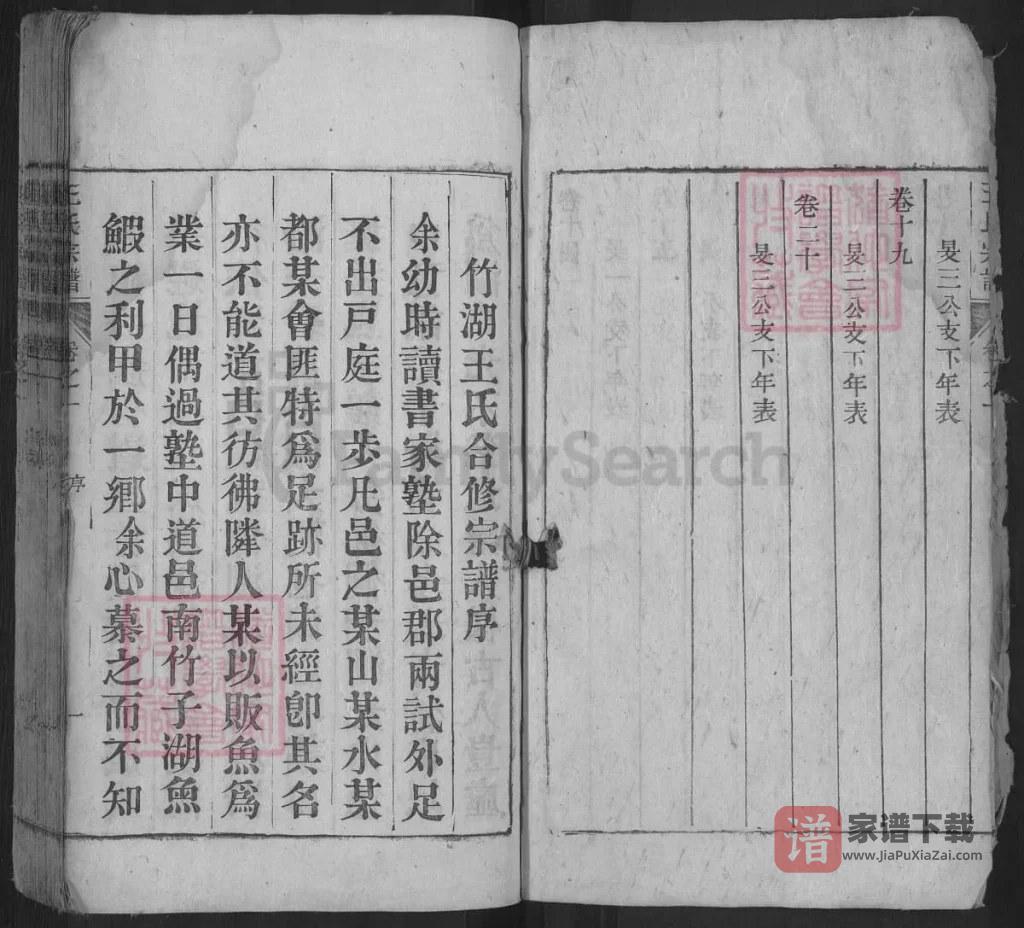 旻三公支下年表
卷十九
旻三公支下年表
卷二十
旻三公支下年表
竹湖王氏合修宗譜序
余幼時讀書家塾除邑郡兩試外足
不出戸庭一歩凡邑之某山某水某
都某會匪特爲足跡所未經卽其名
亦不能道其彷彿隣人某以販魚爲
業一日偶過塾中道邑南竹子湖魚
鰕之利甲於一鄉余心慕之而不知
王氏宗譜
卷之一
序
一
FamilySearch
谱
家谱下载
www.JiaPuXiaZai.com